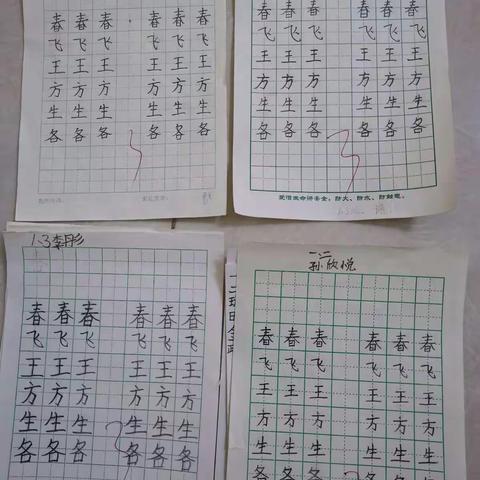 春春春 春春春
飞飞飞 飞飞飞
王王王 王王王
方方方 方方方
生生生 生生生
各各各 各各各
春春春 春春春
飞飞飞 飞飞飞
王王王 王王王
方方方 方方方
生生生 生生生
各各各 各各各
爱惜生命讲安全：防火、防水、防触电。
1.3李彤
春春春 春春春
飞飞飞 飞飞飞
王王王 王王王
方方方 方方方
生生生 生生生
各各各 各各各
一二
孙欣悦
春春春 春春春
飞飞飞 飞飞飞
王王王 王王王
方方方 方方方
生生生 生生生
各各各 各各各